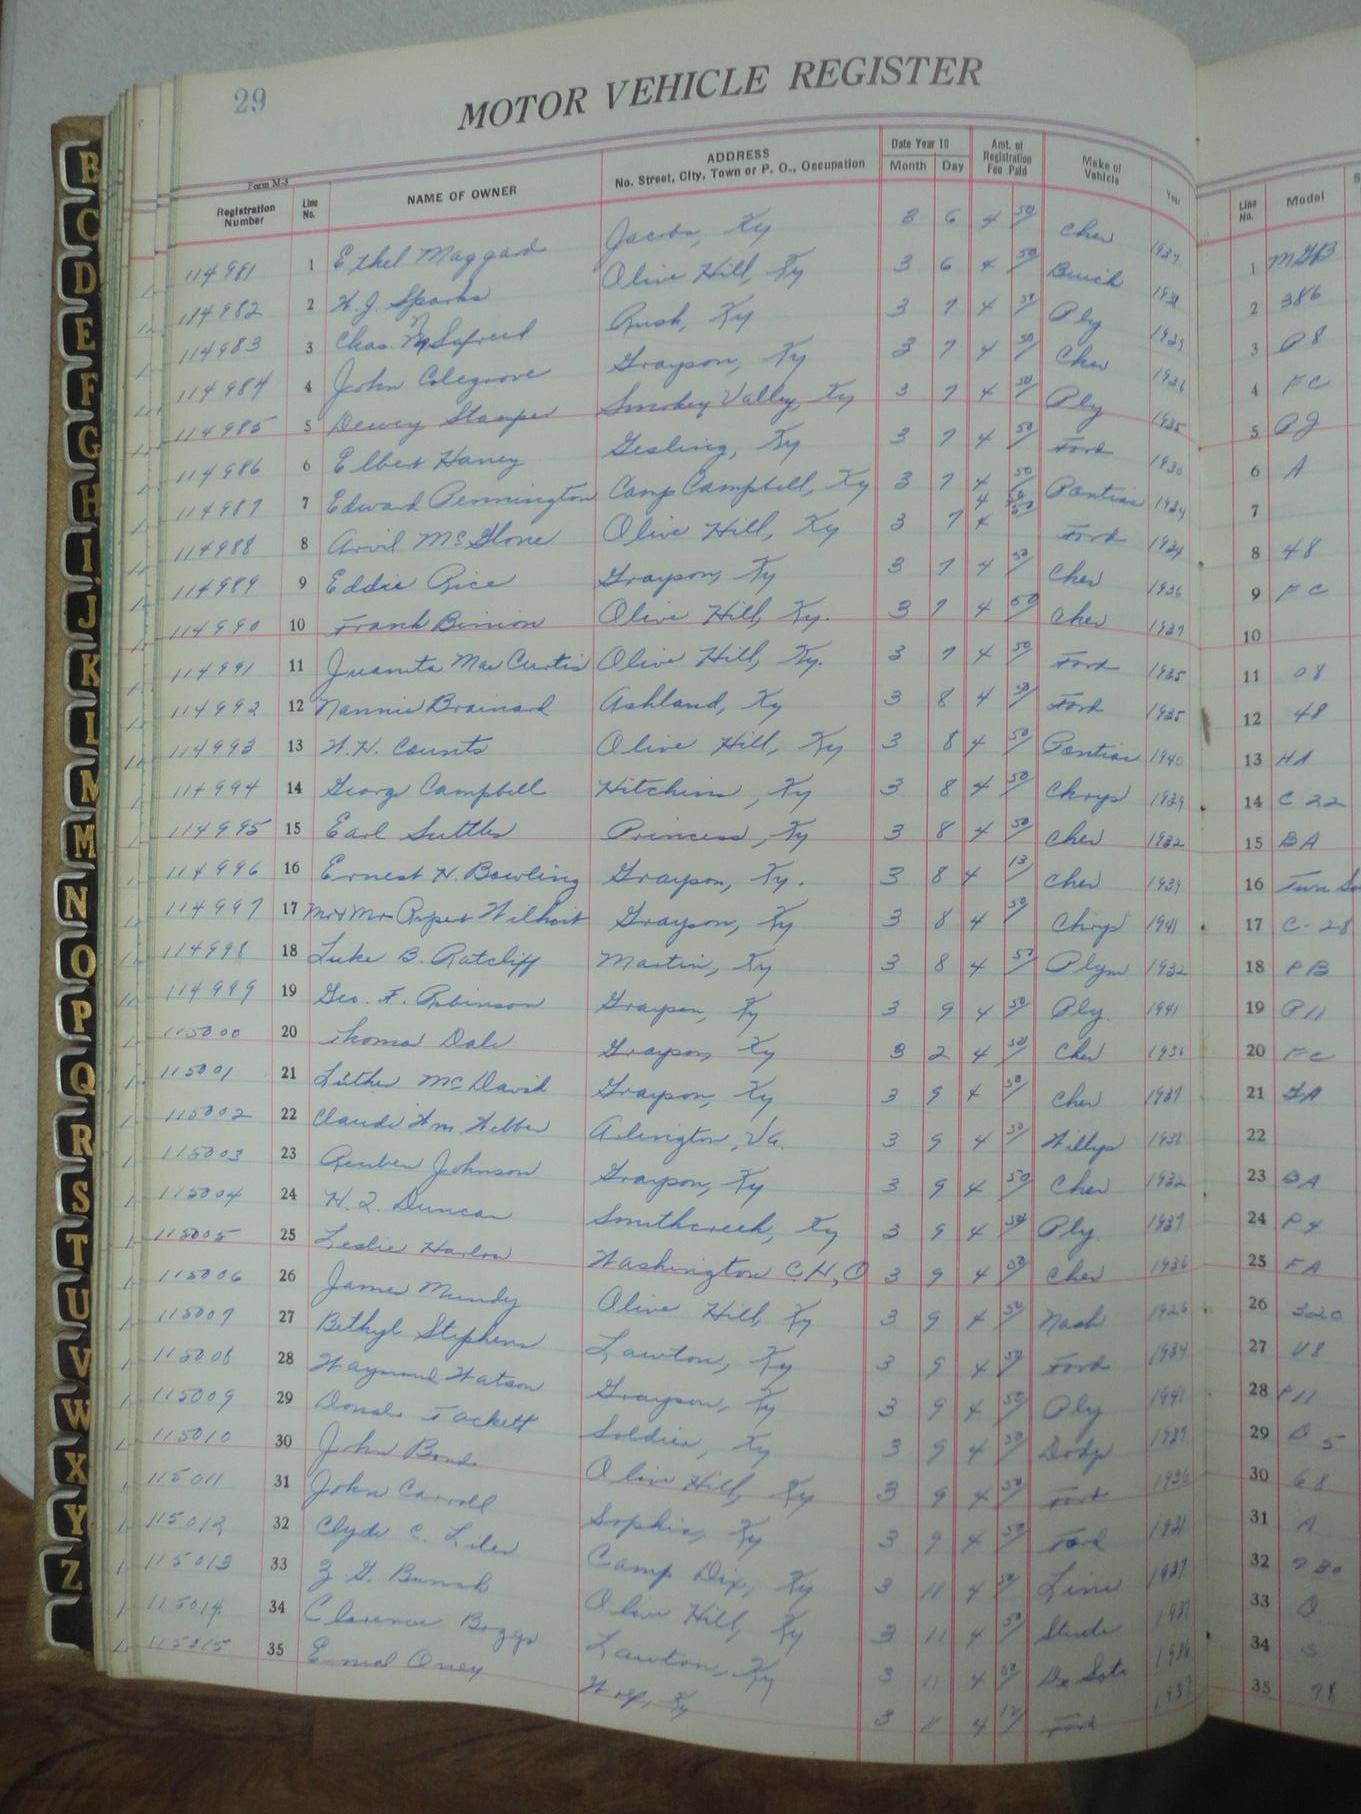 29
MOTOR VEHICLE REGISTER
Form M-3
Registration Number Line No. NAME OF OWNER ADDRESS No. Street, City, Town or P. O., Occupation Date Year 19 Month Day Amt. of Registration Fee Paid Make of Vehicle Year Line No. Model
114981 1 Ethel Maggard Jacobs, Ky 3 6 4 50 Chev 1937 1
114982 2 W.J. Sparks Olive Hill, Ky 3 6 4 50 Buick 1931 2 386
114983 3 Chas. Rush, Ky 3 7 4 50 Ply 1939 3 P8
114984 4 John Colegrove Grayson, Ky 3 7 4 50 Chev 1936 4 FC
114985 5 Dewey Stamper Smokey Valley, Ky 3 7 4 50 Ply 1935 5 PJ
114986 6 Elbert Haney Gesling, Ky 3 7 4 50 Ford 1930 6 A
114987 7 Edward Pennington Camp Campbell, Ky 3 7 4 50 Pontiac 1934 7
114988 8 Arvil McGlone Olive Hill, Ky 3 7 4 50 Ford 1934 8 48
114989 9 Eddie Rice Grayson, Ky 3 7 4 50 Chev 1936 9 FC
114990 10 Frank Binion Olive Hill, Ky. 3 7 4 50 Chev 1937 10
114991 11 Juanita Mae Curtis Olive Hill, Ky. 3 7 4 50 Ford 1935 11 08
114992 12 Nannie Brainard Ashland, Ky 3 8 4 50 Ford 1935 12 48
114993 13 W.H. Counts Olive Hill, Ky 3 8 4 50 Pontiac 1940 13 HA
114994 14 George Campbell Hitchins, Ky 3 8 4 50 Chrys 1939 14 C 22
114995 15 Earl Suttles Princess, Ky 3 8 4 50 Chev 1932 15 BA
114996 16 Ernest H. Bowling Grayson, Ky. 3 8 4 13 Chev 1939 16 Town
114997 17 Mr & Mrs Rupert Wilhoit Grayson, Ky 3 8 4 50 Chrys 1941 17 C-28
114998 18 Luke B. Ratcliff Martin, Ky 3 8 4 50 Plym 1932 18 PB
114999 19 Geo. F. Robinson Grayson, Ky 3 9 4 50 Ply. 1941 19 P11
115000 20 Thomas Dale Grayson, Ky 3 2 4 50 Chev 1936 20 FC
115001 21 Luther McDavid Grayson, Ky 3 9 4 50 Chev 1937 21 GA
115002 22 Claude Wm. Webber Arlington, Va. 3 9 4 50 Willys 1938 22
115003 23 Reuben Johnson Grayson, Ky 3 9 4 50 Chev 1932 23 BA
115004 24 H. Z. Duncan Smithcreek, Ky 3 9 4 50 Ply 1937 24 P4
115005 25 Leslie Harlow Washington C.H., O 3 9 4 50 Chev 1936 25 FA
115006 26 James Mundy Olive Hill, Ky 3 9 4 50 Nash 1926 26 320
115007 27 Bethyl Stephens Lawton, Ky 3 9 4 50 Ford 1934 27 V8
115008 28 Waymond Watson Grayson, Ky 3 9 4 50 Ply 1941 28 P11
115009 29 Donal Tackett Soldier, Ky 3 9 4 50 Dodge 1937 29 D 5
115010 30 John Bond Olive Hill, Ky 3 9 4 50 Ford 1936 30 68
115011 31 John Carroll Sophia, Ky 3 9 4 50 Ford 1931 31 A
115012 32 Clyde C. Liles Camp Dix, Ky 3 11 4 50 Linc 1937 32 730
115013 33 Z. G. Burish Olive Hill, Ky 3 11 4 50 Stude 1937 33
115014 34 Clarence Boggs Lawton, Ky 3 11 4 50 De Soto 1936 34 S
115015 35 Oney Ky 3 11 4 Ford 1937 35 78
B
C
D
E
F
G
H
I
J
K
L
M
M
N
O
P
Q
R
S
T
U
V
W
X
Y
Z